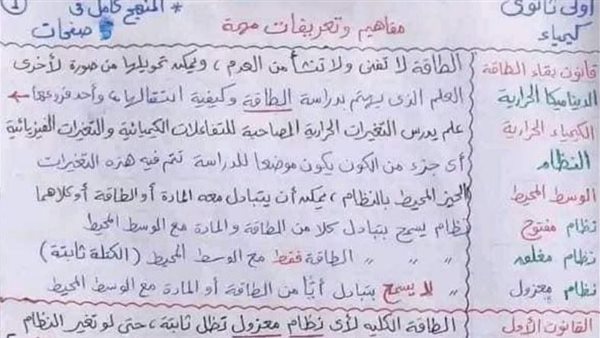 أولى ثانوى
كيمياء
* المنهج كامل فى 5 صفحات
1
مفاهيم وتعريفات مهمة
قانون بقاء الطاقة الطاقة لا تفنى ولا تنشأ من العدم، ويمكن تحويلها من صورة لأخرى
الديناميكا الحرارية العلم الذى يهتم بدراسة الطاقة وكيفية انتقالها، وأحد فروعها
الكيمياء الحرارية علم يدرس التغيرات الحرارية المصاحبة للتفاعلات الكيميائية والتغيرات الفيزيائية
النظام أى جزء من الكون يكون موضعا للدراسة تتم فيه هذه التغيرات
الوسط المحيط الحيز المحيط بالنظام، يمكن أن يتبادل معه المادة أو الطاقة أو كلاهما
نظام مفتوح نظام يسمح بتبادل كلا من الطاقة والمادة مع الوسط المحيط
نظام مغلق " " " الطاقة فقط مع الوسط المحيط (الكتلة ثابتة)
نظام معزول " لا يسمح بتبادل أيًا من الطاقة أو المادة مع الوسط المحيط
القانون الأول الطاقة الكليه لأى نظام معزول تظل ثابتة، حتى لو تغير النظام